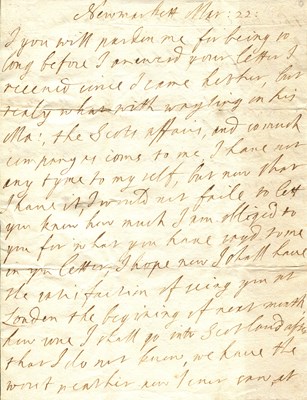 Newmarkett Mar: 22:
I you will pardon me for being so
long before I answered your letter I
receved since I came hether, but
realy what with wayting on his
Ma: the Scots affairs, and so much
company as coms to me I have not
any tyme to my self, but now that
I have it, I would not faile to lett
you know how much I am obliged to
you for what you have sayd to me
in your letter, I hope now I shall have
the satisfaction of seing you at
London the begining of next month
how soone I shall go into Scotland after
that I do not know, we have the
worst weather now I ever saw, at